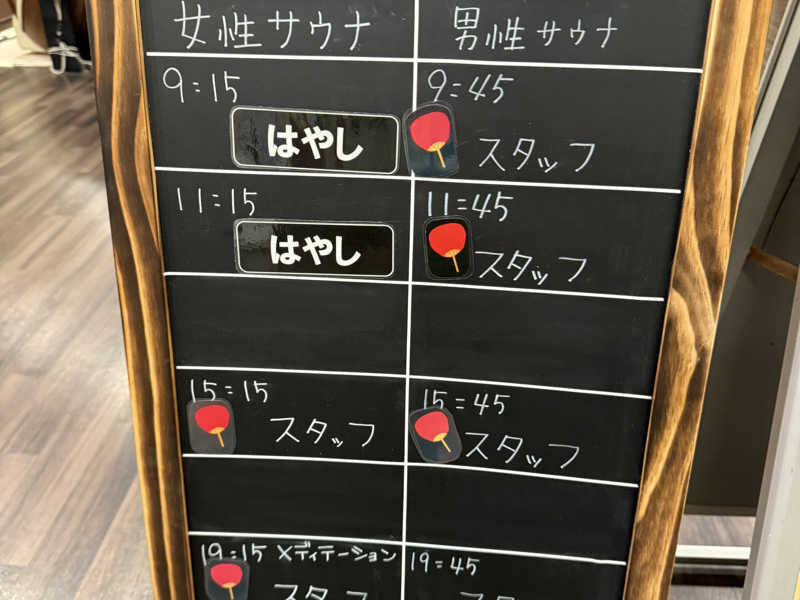 女性サウナ 男性サウナ
9:15 9:45
はやし スタッフ
11:15 11:45
はやし スタッフ
15:15 15:45
スタッフ スタッフ
19:15 メディテーション 19:45